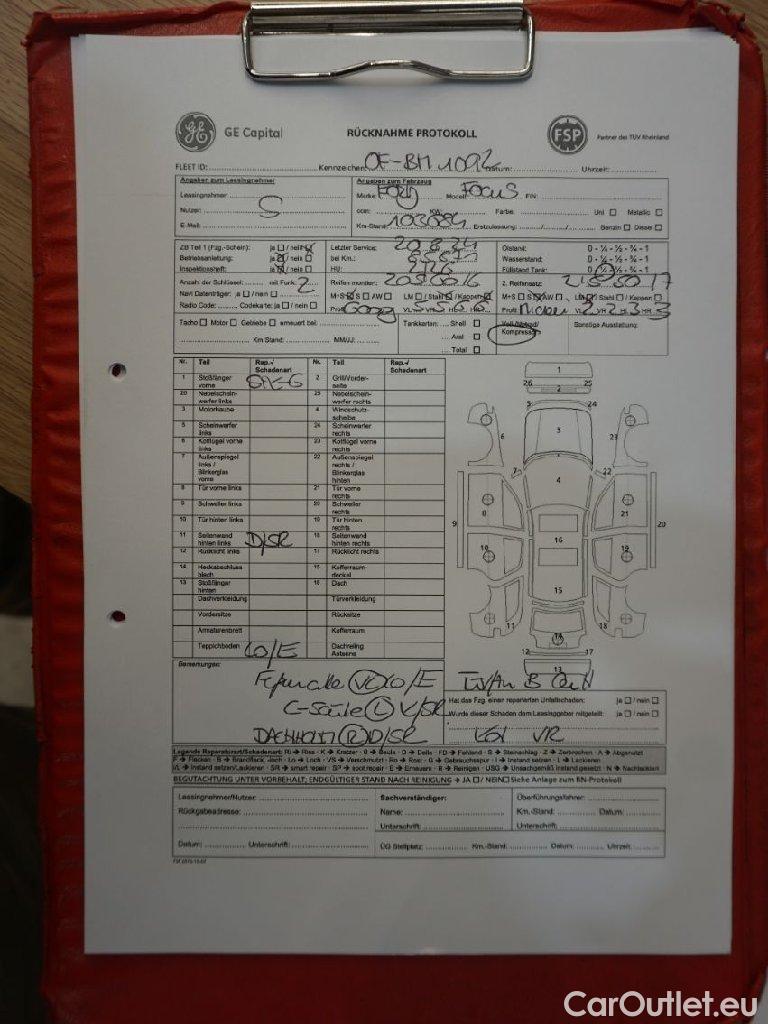 GE Capital
RÜCKNAHME PROTOKOLL
FSP
Partner des TÜV Rheinland
FLEET ID: Kennzeichen: OF-BM 1092 Datum: Uhrzeit:
Angaben zum Leasingnehmer
Angaben zum Fahrzeug
Leasingnehmer: Marke Ford Modell: Focus FIN:
Nutzer: S ccm: KW: Farbe: Uni Metallic
E-Mail: Km-Stand: 103084 Erstzulassung: Benzin Diesel
ZB Teil 1 (Fzg.-Schein): ja / nein Letzter Service: 20.8.24 Ölstand: 0 - ¼ - ½ - ¾ - 1
Betriebsanleitung: ja / nein bei Km.: Wasserstand: 0 - ¼ - ½ - ¾ - 1
Inspektionsheft: ja / nein HU: Füllstand Tank: 0 - ¼ - ½ - ¾ - 1
Anzahl der Schlüssel: mit Funk: 2 Reifen montiert: 205 60 16 2. Reifensatz: 215 50 17
Navi Datenträger: ja / nein M+S S AW LM / Stahl / Kappen M+S S AW LM / Stahl / Kappen
Radio Code: Codekarte: ja / nein Profil
Tacho Motor Getriebe erneuert bei: Tankkarten: Shell Voll/Notrad/ Sonstige Ausstattung:
Aral Kompressor
Km Stand: MM/JJ: Total
Nr. Teil Rep.-/ Schadenart Nr. Teil Rep.-/ Schadenart
1 Stoßfänger vorne 2 Grill/Vorderseite
Nebelscheinwerfer links Nebelscheinwerfer rechts
3 Motorhaube 4 Windschutzscheibe
5 Scheinwerfer links 24 Scheinwerfer rechts
6 Kotflügel vorne links 23 Kotflügel vorne rechts
7 Außenspiegel links / Blinkerglas vorne 22 Außenspiegel rechts / Blinkerglas hinten
8 Tür vorne links 21 Tür vorne rechts
9 Schweller links 20 Schweller rechts
10 Tür hinten links 19 Tür hinten rechts
11 Seitenwand hinten links D/SR 18 Seitenwand hinten rechts
12 Rücklicht links 17 Rücklicht rechts
14 Heckabschlussblech 15 Kofferraumdeckel
13 Stoßfänger hinten 16 Dach
Dachverkleidung Türverkleidung
Vordersitze Rücksitze
Armaturenbrett Kofferraum
Teppichboden LO/E Dachreling Antenne
1
26 2 25
5 24
3
6 23
7 22
4
8 21
9 20
16
10 19
15
11 18
14
12 17
13
Bemerkungen:
C-Säule L
Hat das Fzg. einen reparierten Unfallschaden: ja / nein
Wurde dieser Schaden dem Leasinggeber mitgeteilt: ja / nein
D/SR
Legende Reparaturart/Schadenart: Ri → Riss - K → Kratzer - B → Beule - D → Delle - FD → Fehlend - S → Steinschlag - Z → Zerbrochen - A → Abgenutzt
F → Flecken - B → Brandfleck, -loch - Lo → Loch - VS → Verschmutzt - Ro → Rost - G → Gebrauchsspur - I → Instand setzen - L → Lackieren
I/L → Instand setzen/Lackieren - SR → smart repair - SP → spot repair - E → Erneuern - R → Reinigen - USG → Unsachgemäß instand gesetzt - N → Nachlackiert
BEGUTACHTUNG UNTER VORBEHALT; ENDGÜLTIGER STAND NACH REINIGUNG → JA / NEIN Siehe Anlage zum RN-Protokoll
Leasingnehmer/Nutzer: Sachverständiger: Überführungsfahrer:
Rückgabeadresse: Name: Km.-Stand: Datum:
Unterschrift: Unterschrift:
Datum: Unterschrift: ÜG Stellplatz: Km.-Stand: Datum: Uhrzeit:
CarOutlet.eu